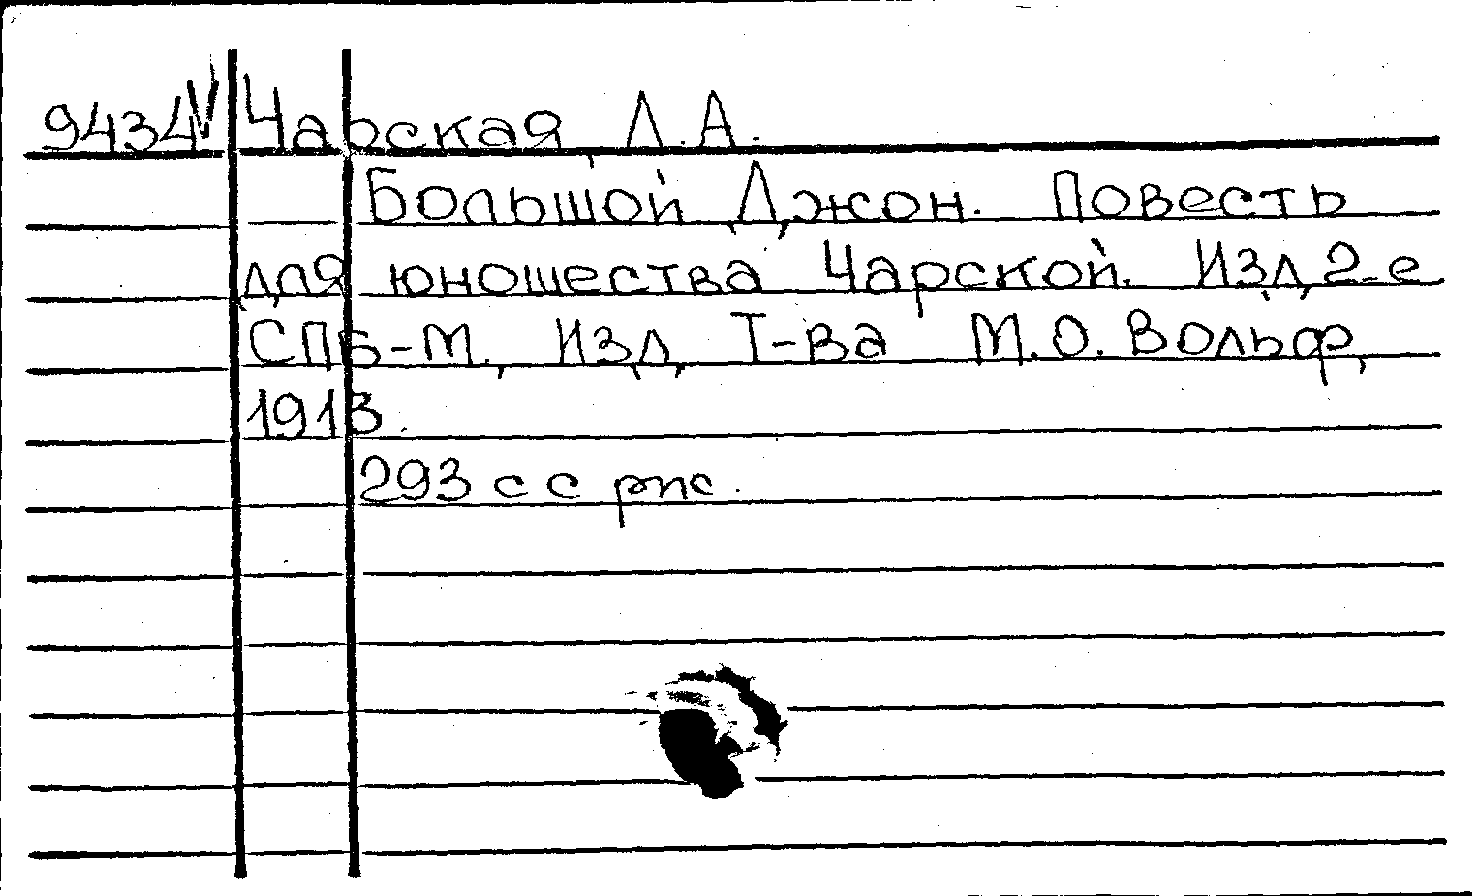 9434 Чарская, Л.А.
Большой Джон. Повесть
для юношества Чарской. Изд. 2-е
СПБ-М., Изд. Т-ва М.О. Вольф,
1913.
293 с с рис.